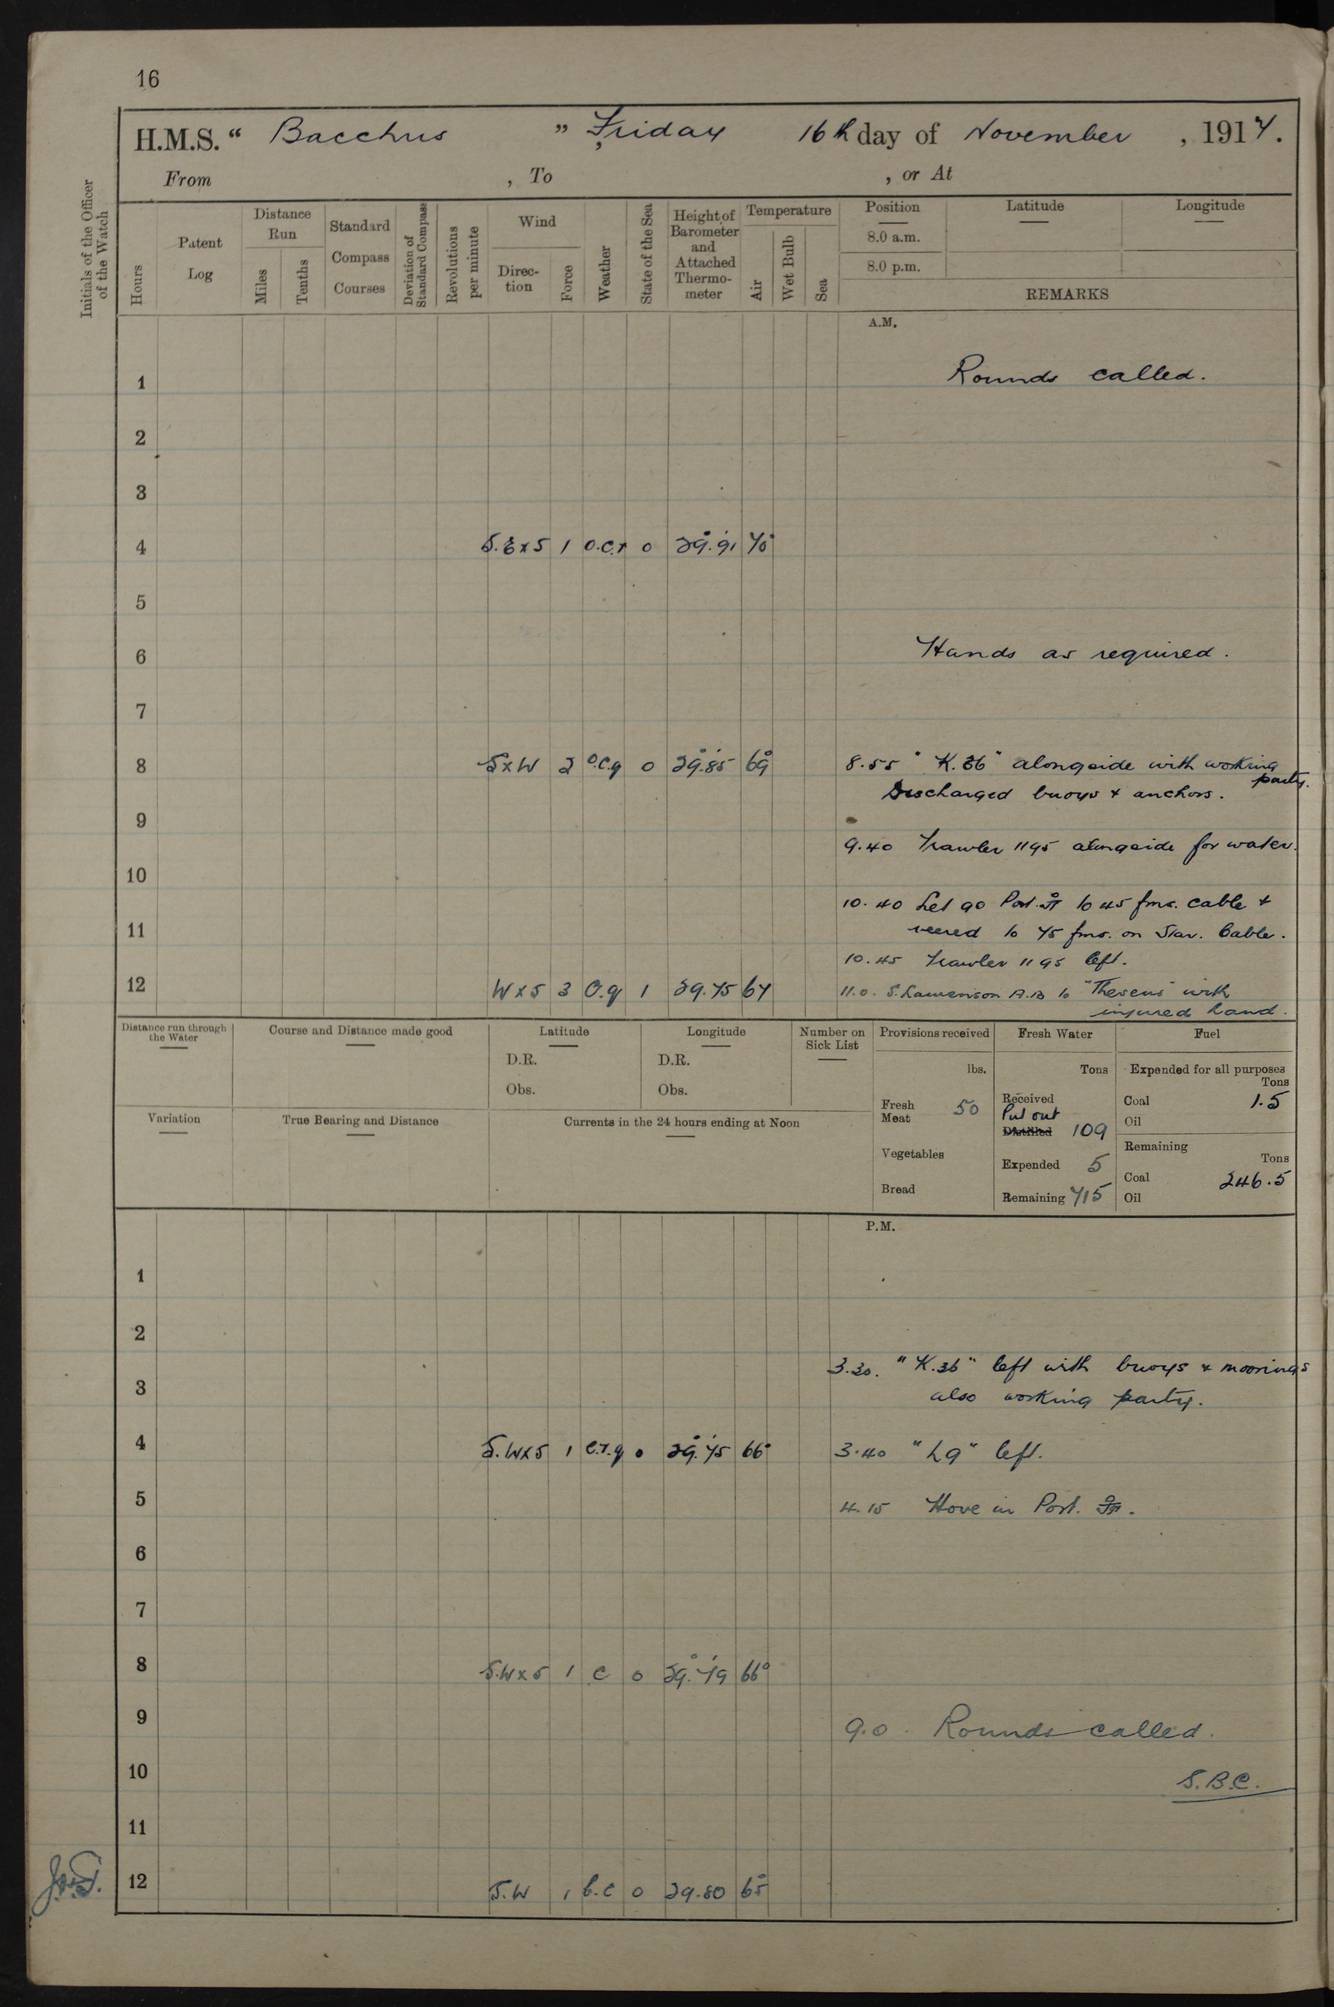 16
H.M.S. “ Bacchus ” , Friday 16th day of November , 1917.
From , To , or At
Initials of the Officer of the Watch
Hours
Patent Log
Distance Run
Miles
Tenths
Standard Compass Courses
Deviation of Standard Compass
Revolutions per minute
Wind
Direction
Force
Weather
State of the Sea
Height of Barometer and Attached Thermometer
Temperature
Air
Wet Bulb
Sea
Position Latitude Longitude
8.0 a.m.
8.0 p.m.
REMARKS
A.M.
1 Rounds called.
2
3
4 S.E x S 1 o.c.r 0 29.91 70°
5
6 Hands as required.
7
8 S x W 2 o.c.q 0 29.85 69° 8.55 "K.36" alongside with working party.
Discharged buoys & anchors.
9
9.40 Trawler 1195 alongside for water.
10
10.40 Let go Port ⚓ to 45 fms. cable &
11 veered to 75 fms. on Star. Cable.
10.45 Trawler 1195 left.
12 W x S 3 O.q 1 29.75 67 11.0. S. Lamenson A.B to "Theseus" with
injured hand.
Distance run through the Water
Course and Distance made good
Latitude
D.R.
Obs.
Longitude
D.R.
Obs.
Number on Sick List
Provisions received
lbs.
Fresh Meat 50
Vegetables
Bread
Fresh Water
Tons
Received
Put out
Distilled 109
Expended 5
Remaining 715
Fuel
Expended for all purposes
Tons
Coal 1.5
Oil
Remaining
Tons
Coal 246.5
Oil
Variation
True Bearing and Distance
Currents in the 24 hours ending at Noon
P.M.
1
2
3.30. "K.36" left with buoys & moorings
3 also working party.
4 S.W x S 1 c.r.q 0 29.75 66° 3.40 "L9" left.
5 4.15 Hove in Port. ⚓.
6
7
8 S.W x S 1 c 0 29.79 66°
9 9.0. Rounds called.
10 S.B.C.
11
12 S.W 1 b.c 0 29.80 65°